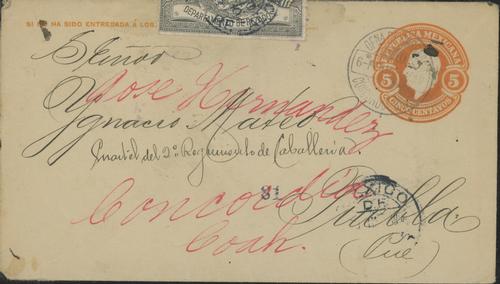 SI NO HA SIDO ENTREGADA A LOS
DEPARTAMENTO DE REZAGOS
REPUBLICA MEXICANA
5 5
CINCO CENTAVOS
Señor
Jose Hernandez
Ignacio Mateo
Cuartel del 2º Regimiento de Caballeria.
31
MEXICO
D.F.
Concordia
Puebla
Coah.
(Pue)